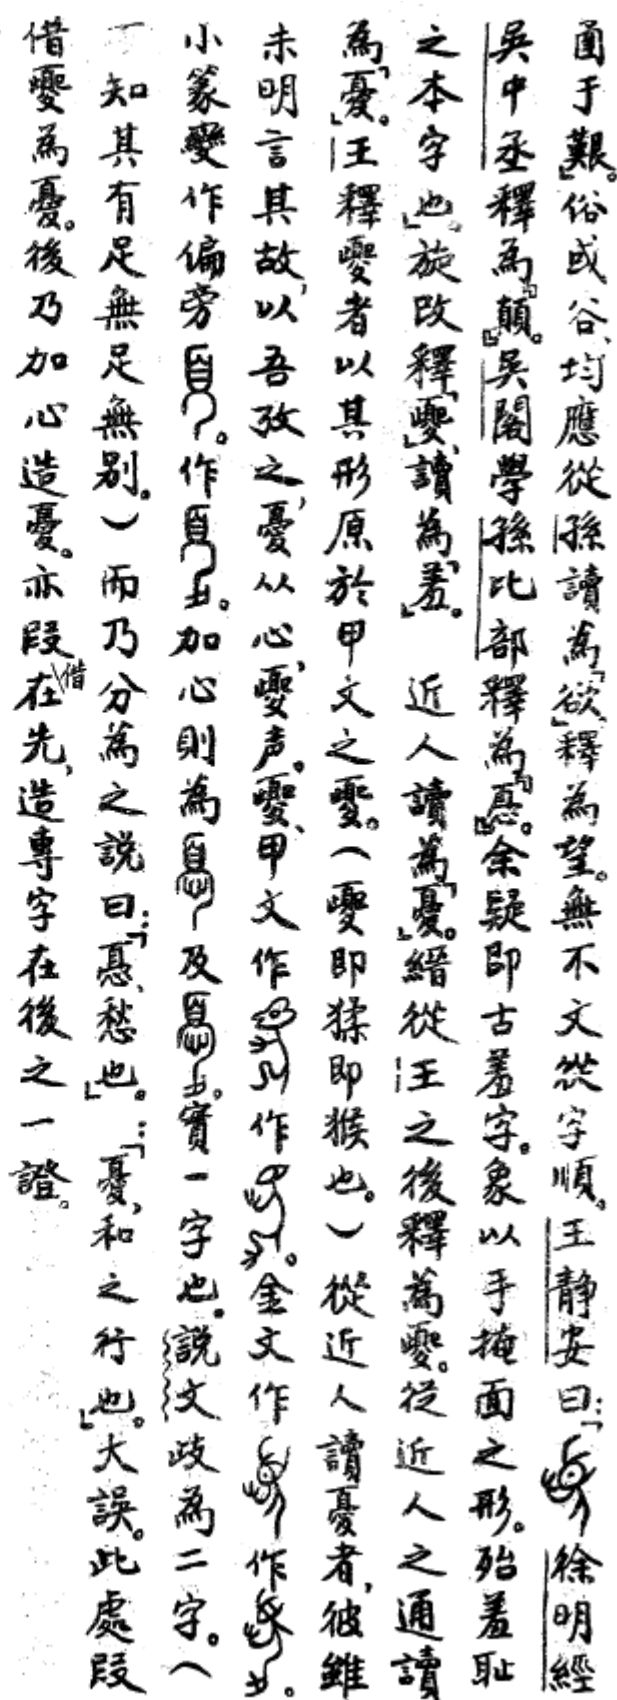 圅于艱。俗或谷、均應從孫讀為「欲」、釋為望。無不文從字順。王靜安曰：「徐明經
吳中丞釋為『顛』。吳閣學孫比部釋為『㥑』。余疑即古羞字。象以手掩面之形。殆羞恥
之本字也」。旋改釋「夒」、讀為「羞」。近人讀為「憂」。縉從王之後釋為夒。從近人之通讀
為「憂」。王釋夒者以其形原於甲文之夒。（夒即猱即猴也。）從近人讀憂者，彼雖
未明言其故，以吾攷之，憂从心，夒声。夒、甲文作作。金文作作。
小篆變作偏旁。作。加心則為及。實一字也。說文歧為二字。（
知其有足無足無別。）而乃分為之說曰：「㥑、愁也。」：「憂，和之行也」。大誤。此處叚
借夒為憂。後乃加心造憂。亦叚借在先，造專字在後之一證。